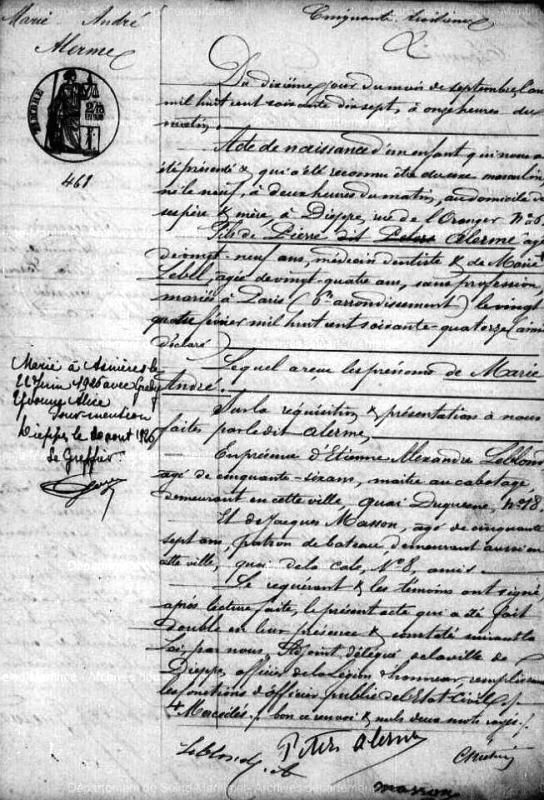 Marie André
Alerme
TIMBRE
461
Du dixième jour du mois de septembre, l'an
mil huit cent soixante dix sept, à onze heures du
matin.
Acte de naissance d'un enfant qui nous a
été présenté & qui a été reconnu être du sexe masculin,
né le neuf, à deux heures du matin, au domicile de
ses père & mère, à Dieppe, rue de l'Oranger N° 6.
Fils de Pierre dit Peters Alerme, agé
de vingt-neuf ans, médecin dentiste & de Marie
Lebel, agée de vingt-quatre ans, sans profession,
mariés à Paris (6me arrondissement) le vingt
quatre février mil huit cent soixante-quatorze, ainsi
déclaré
Lequel a reçu les prénoms de Marie
André.
Sur la réquisition & présentation à nous
faites par le dit Alerme,
En présence d'Etienne Alexandre Leblond
agé de cinquante-six ans, maître au cabotage
demeurant en cette ville, quai Duquesne, N° 18.
Et de Jacques Masson, agé de cinquante
sept ans, patron de bateau, demeurant aussi en
cette ville, quai de la cale, N° 8, amis.
Le requérant & les témoins ont signé,
après lecture faite, le présent acte qui a été fait
double en leur présence & constaté suivant la
Loi par nous, Adjoint délégué de la ville de
Dieppe, officier de la Légion d'honneur, remplissant
les fonctions d'officier public de l'Etat Civil.
bon ce renvoi & nuls deux mots rayés
Marié à Asnières le
Juin 1926 avec
Yvonne Alice
Pour mention
Dieppe le 20 août 1926
Le Greffier
Leblond
Peters Alerme
Masson